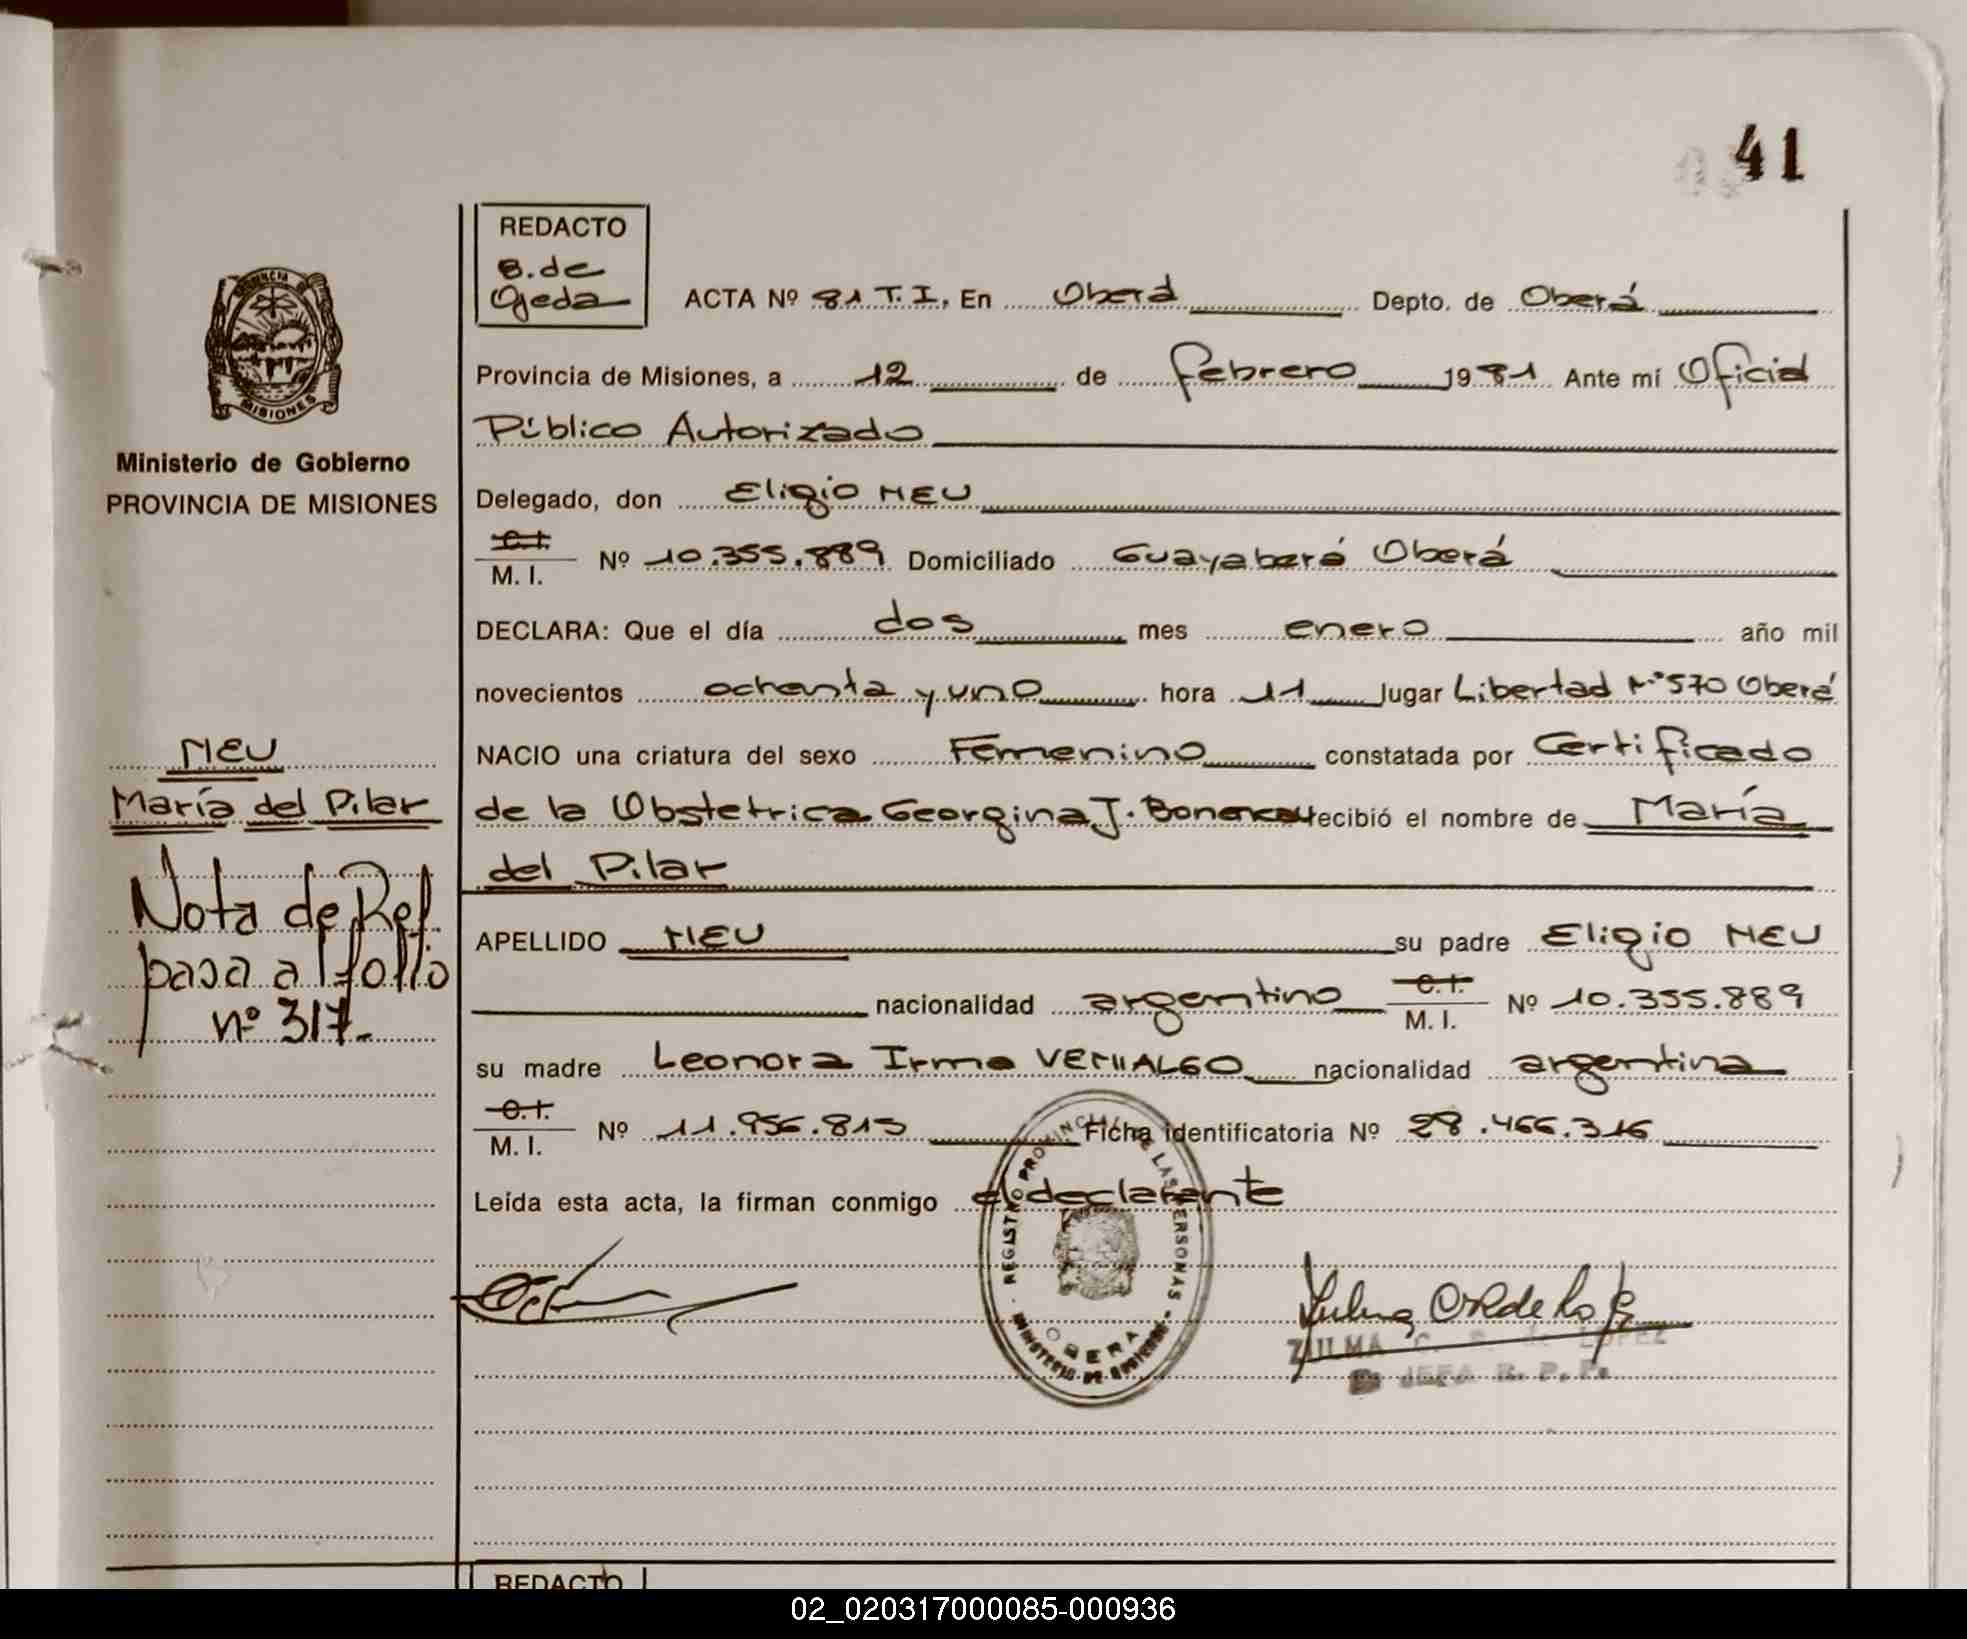 41
REDACTO
B. de
Ojeda
ACTA Nº 81 T.I. En Oberá Depto. de Oberá
Provincia de Misiones, a 12 de febrero 1981 Ante mí Oficial
Público Autorizado
Ministerio de Gobierno
PROVINCIA DE MISIONES
Delegado, don Eligio NEU
C.I.
M. I. Nº 10.355.889 Domiciliado Guayaberá Oberá
DECLARA: Que el día dos mes enero año mil
novecientos ochenta y uno hora 11 lugar Libertad Nº 570 Oberá
NEU
María del Pilar
NACIO una criatura del sexo Femenino constatada por Certificado
de la Obstetrica Georgina J. recibió el nombre de María
del Pilar
Nota de Ref.
pasa al folio
nº 317.-
APELLIDO NEU su padre Eligio NEU
nacionalidad argentino C.I.
M. I. Nº 10.355.889
su madre Leonora Irma nacionalidad argentina
C.I.
M. I. Nº 11.956.815 Ficha identificatoria Nº 28.466.316
Leída esta acta, la firman conmigo el declarante
REGISTRO PROVINCIAL DE LAS PERSONAS
OBERA
MINISTERIO DE GOBIERNO
ZULMA C. R. de LOPEZ
JEFA R. P. P.
REDACTO
02_020317000085-000936